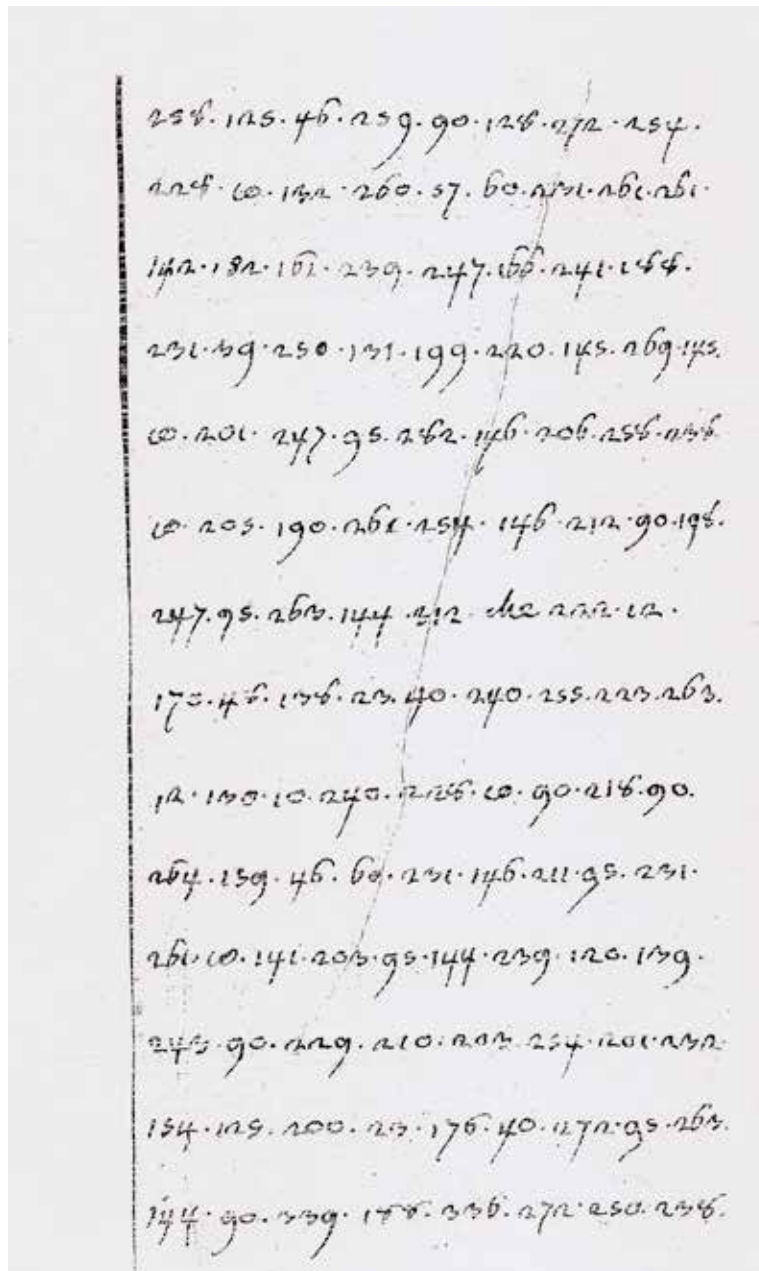 258. 125. 46. 259. 90. 128. 272. 254.
228. 10. 132. 260. 57. 60. 231. 261. 261.
142. 182. 161. 239. 247. 166. 241. 188.
231. 39. 250. 131. 199. 220. 145. 269. 145.
10. 201. 247. 95. 282. 146. 206. 258. 238.
10. 205. 190. 261. 254. 146. 212. 90. 198.
247. 95. 263. 144. 212. 222. 12.
170. 46. 138. 23. 40. 240. 255. 223. 263.
12. 130. 10. 240. 228. 10. 90. 218. 90.
264. 159. 46. 60. 231. 146. 211. 95. 231.
261. 10. 141. 203. 95. 144. 239. 120. 139.
243. 90. 229. 210. 254. 201. 232.
154. 125. 200. 23. 176. 40. 272. 95. 263.
144. 90. 339. 336. 272. 250. 238.